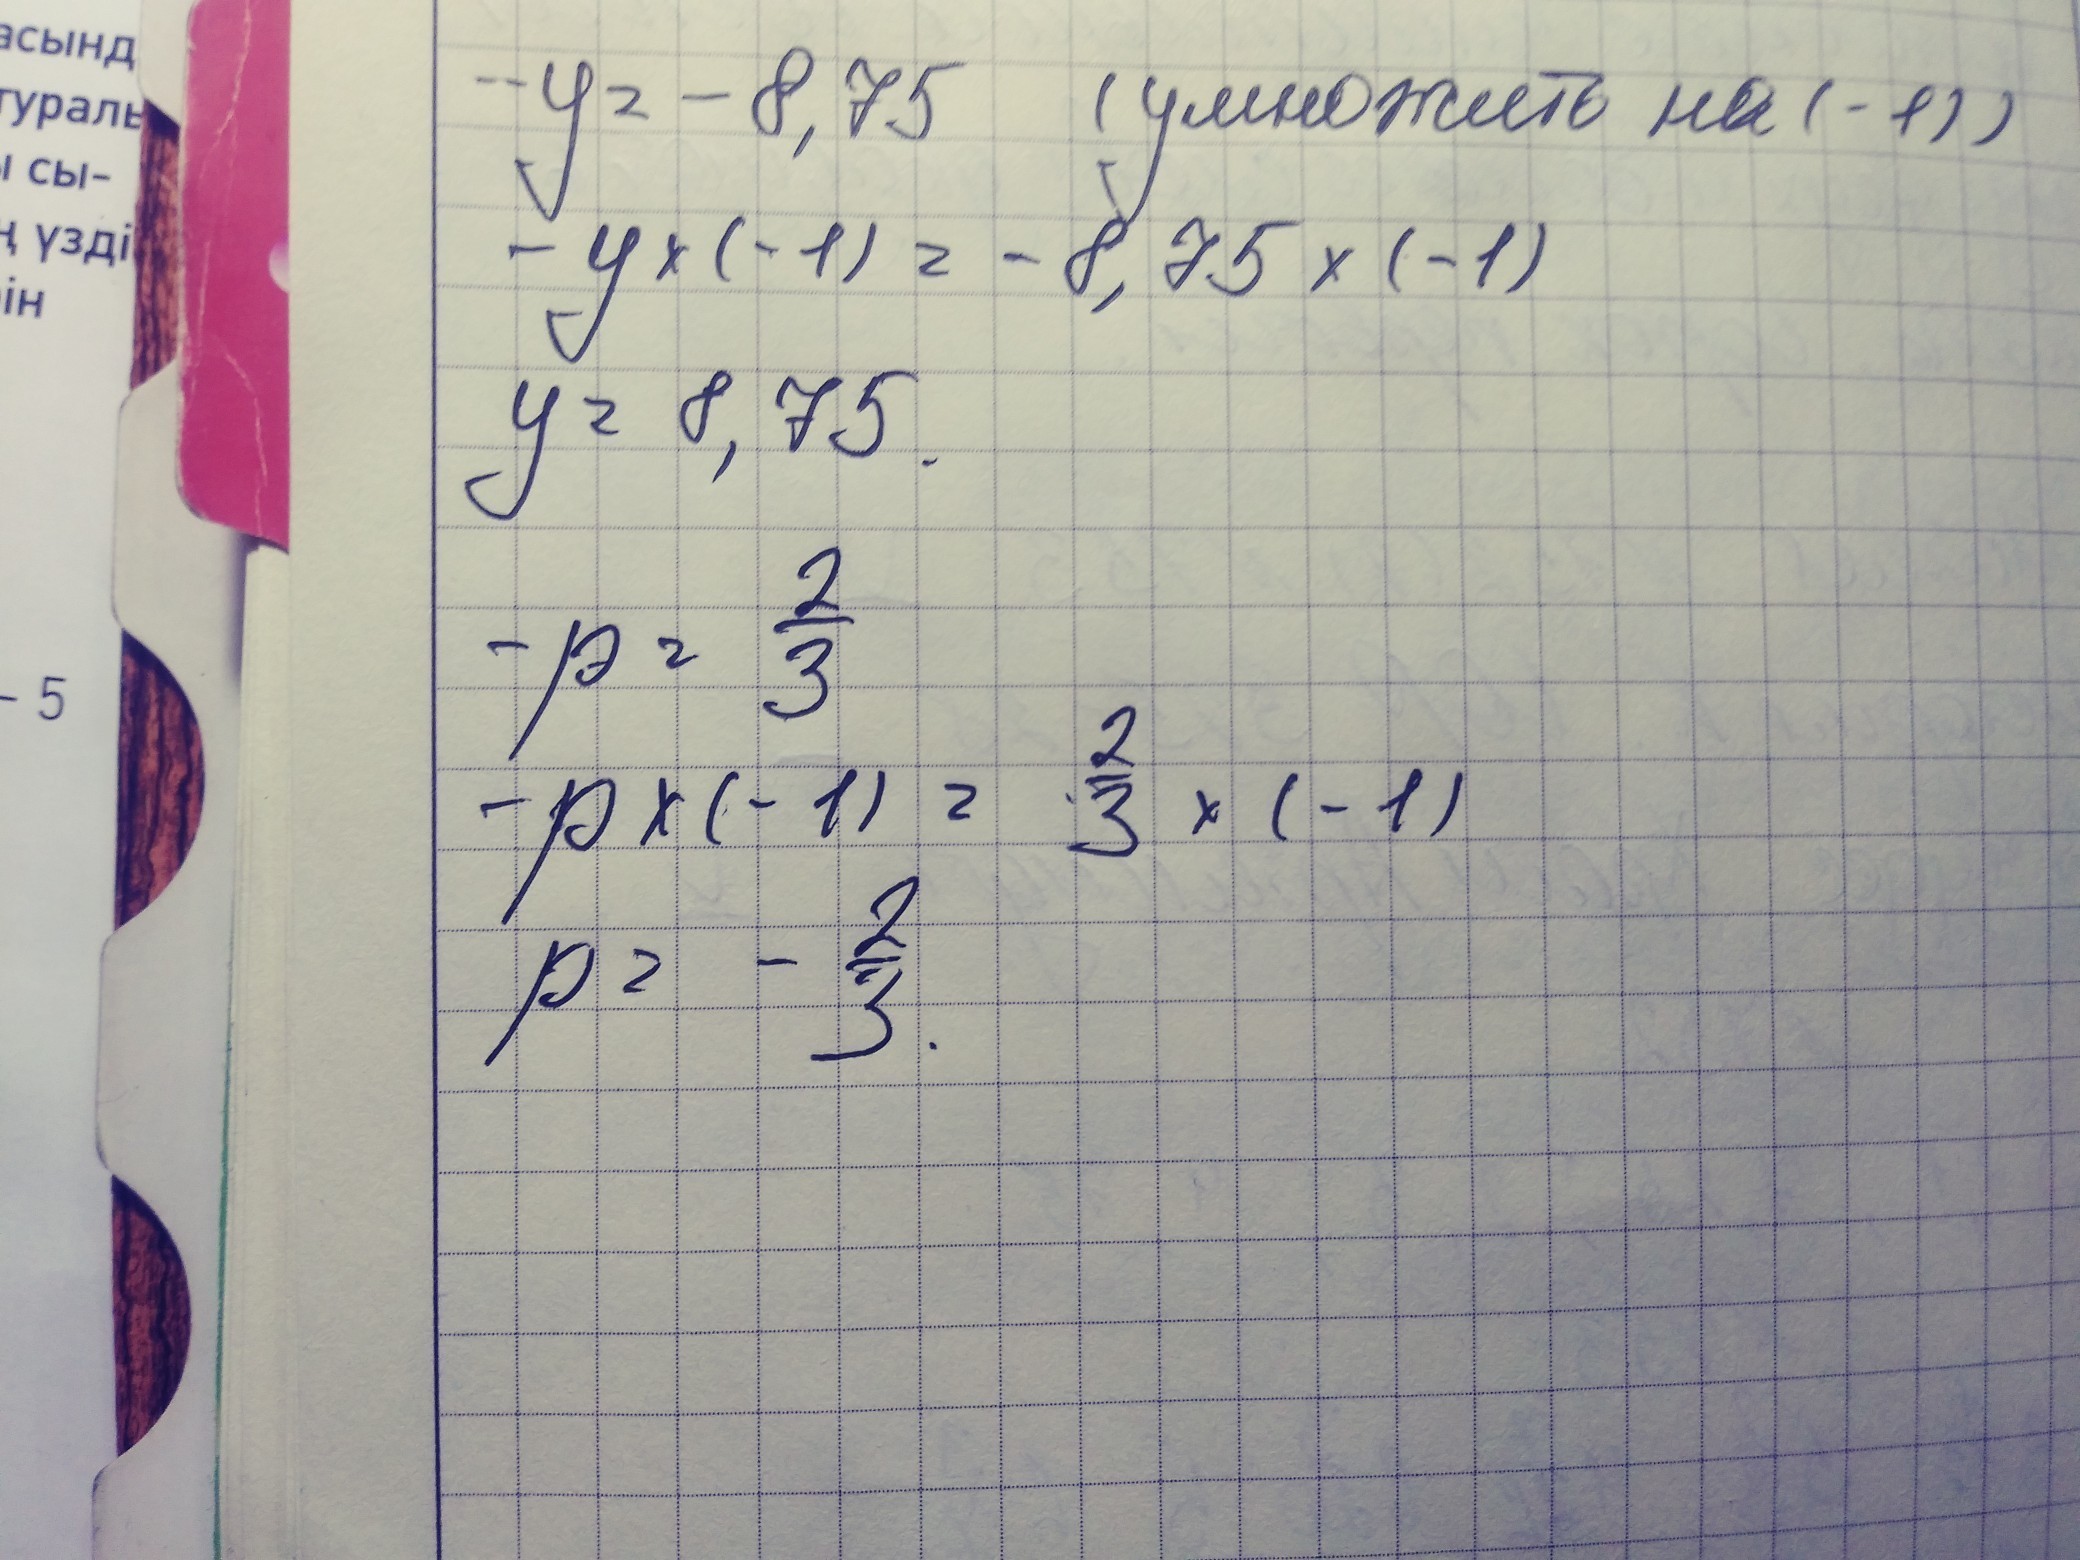 асынд
тураль
ы сы-
ң үзді
ін
- 5
-y = -8,75 (умножить на (-1))
-y × (-1) = -8,75 × (-1)
y = 8,75.
-p = 2/3
-p × (-1) = 2/3 × (-1)
p = - 2/3.